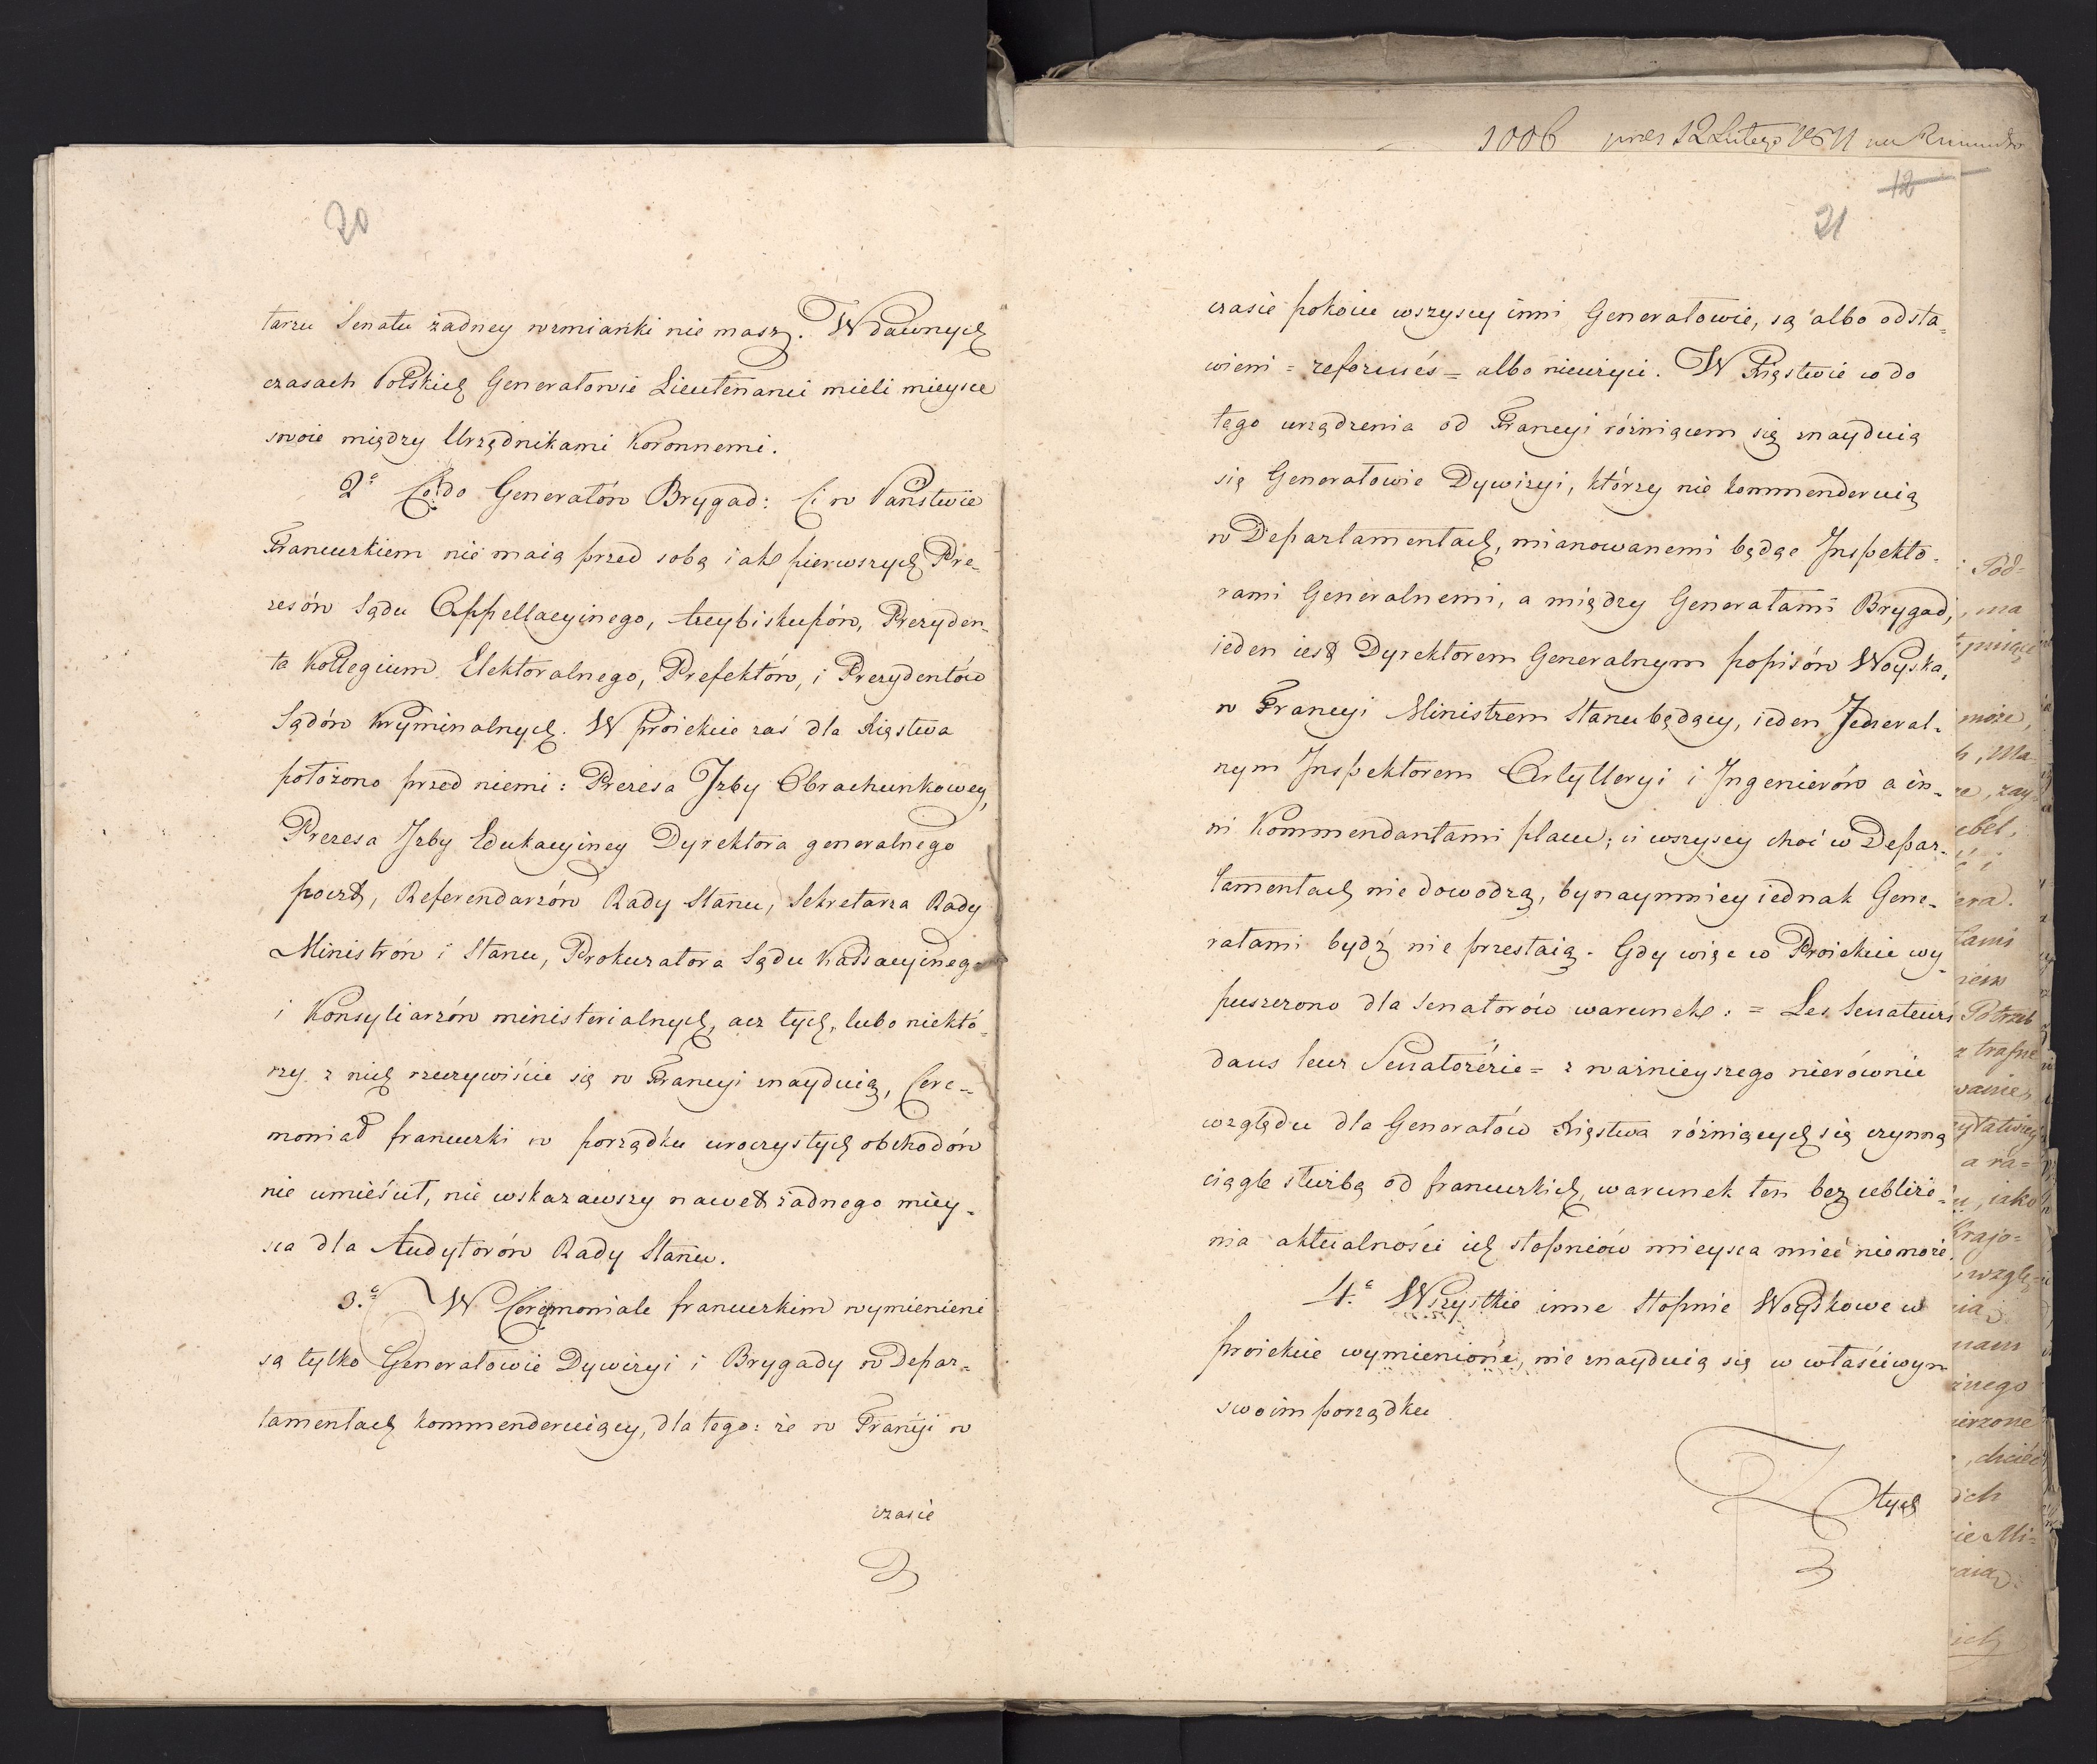 20
tarzu Senatu żadney wzmianki nie masz. W dawnych
czasach Polskich Generałowie Lieutenanci mieli mieysce
swoie między Urzędnikami Koronnemi.
2e Co do Generałów Brygad: Ci w Państwie
Francuzkiem nie maią przed sobą iak pierwszych Pre-
zesów Sądu Appellacyinego, Arcybiskupów, Prezyden-
ta Kollegium Elektoralnego, Prefektów, i Prezydentów
Sądów Kryminalnych. W proiekcie zaś dla Xięstwa
położono przed niemi: Prezesa Izby Obrachunkowey,
Prezesa Izby Edukacyiney Dyrektora generalnego
poczt, Referendarzów Rady Stanu, Sekretarza Rady
Ministrów i Stanu, Prokuratora Sądu Kassacyinego
i Konsyliarzów ministerialnych, acz tych, lubo niektó-
rzy z nich rzeczywiście się w Francyi znayduią, Cere-
moniał francuzki w porządku uroczystych obchodów
nie umieścił, nie wskazawszy nawet żadnego miey-
sca dla Audytorów Rady Stanu.
3.e W Ceremoniale francuzkim wymienieni
są tylko Generałowie Dywizyi i Brygady w Depar-
tamentach kommenderuiący, dla tego: że w Francyi w
czasie
1006 12 Lutego 1811
12
21
czasie pokoiu wszyscy inni Generałowie, są albo odsta-
wieni = reformés = albo nieużyci. W Xięstwie co do
tego urządzenia od Francyi różniącem się znayduią
się Generałowie Dywizyi, którzy nie kommenderuią
w Departamentach, mianowanemi będąc Inspekto-
rami Generalnemi, a między Generałami Brygad,
ieden iest Dyrektorem Generalnym popisów Woyska,
w Francyi Ministrem Stanu będący, ieden Jeneral-
nym Inspektorem Artylleryi i Ingenierów a in-
ni Kommendantami placu; ci wszyscy choć w Depar-
tamentach nie dowodzą, bynaymniey iednak Gene-
rałami bydź nie przestaią. Gdy więc w Proiekcie wy-
puszczono dla Senatorów warunek: = Les Senateurs
dans leur Senatorérie = z ważnieyszego nierównie
względu dla Generałów Xięstwa różniących się czynną
ciągle służbą od francuzkich, warunek ten bez ubliże-
nia aktualności ich stopniów mieysca mieć niemoże.
4.e Wszystkie inne stopnie Woyskowe w
proiekcie wymienione, nie znayduią się w właściwym
swoim porządku
tych